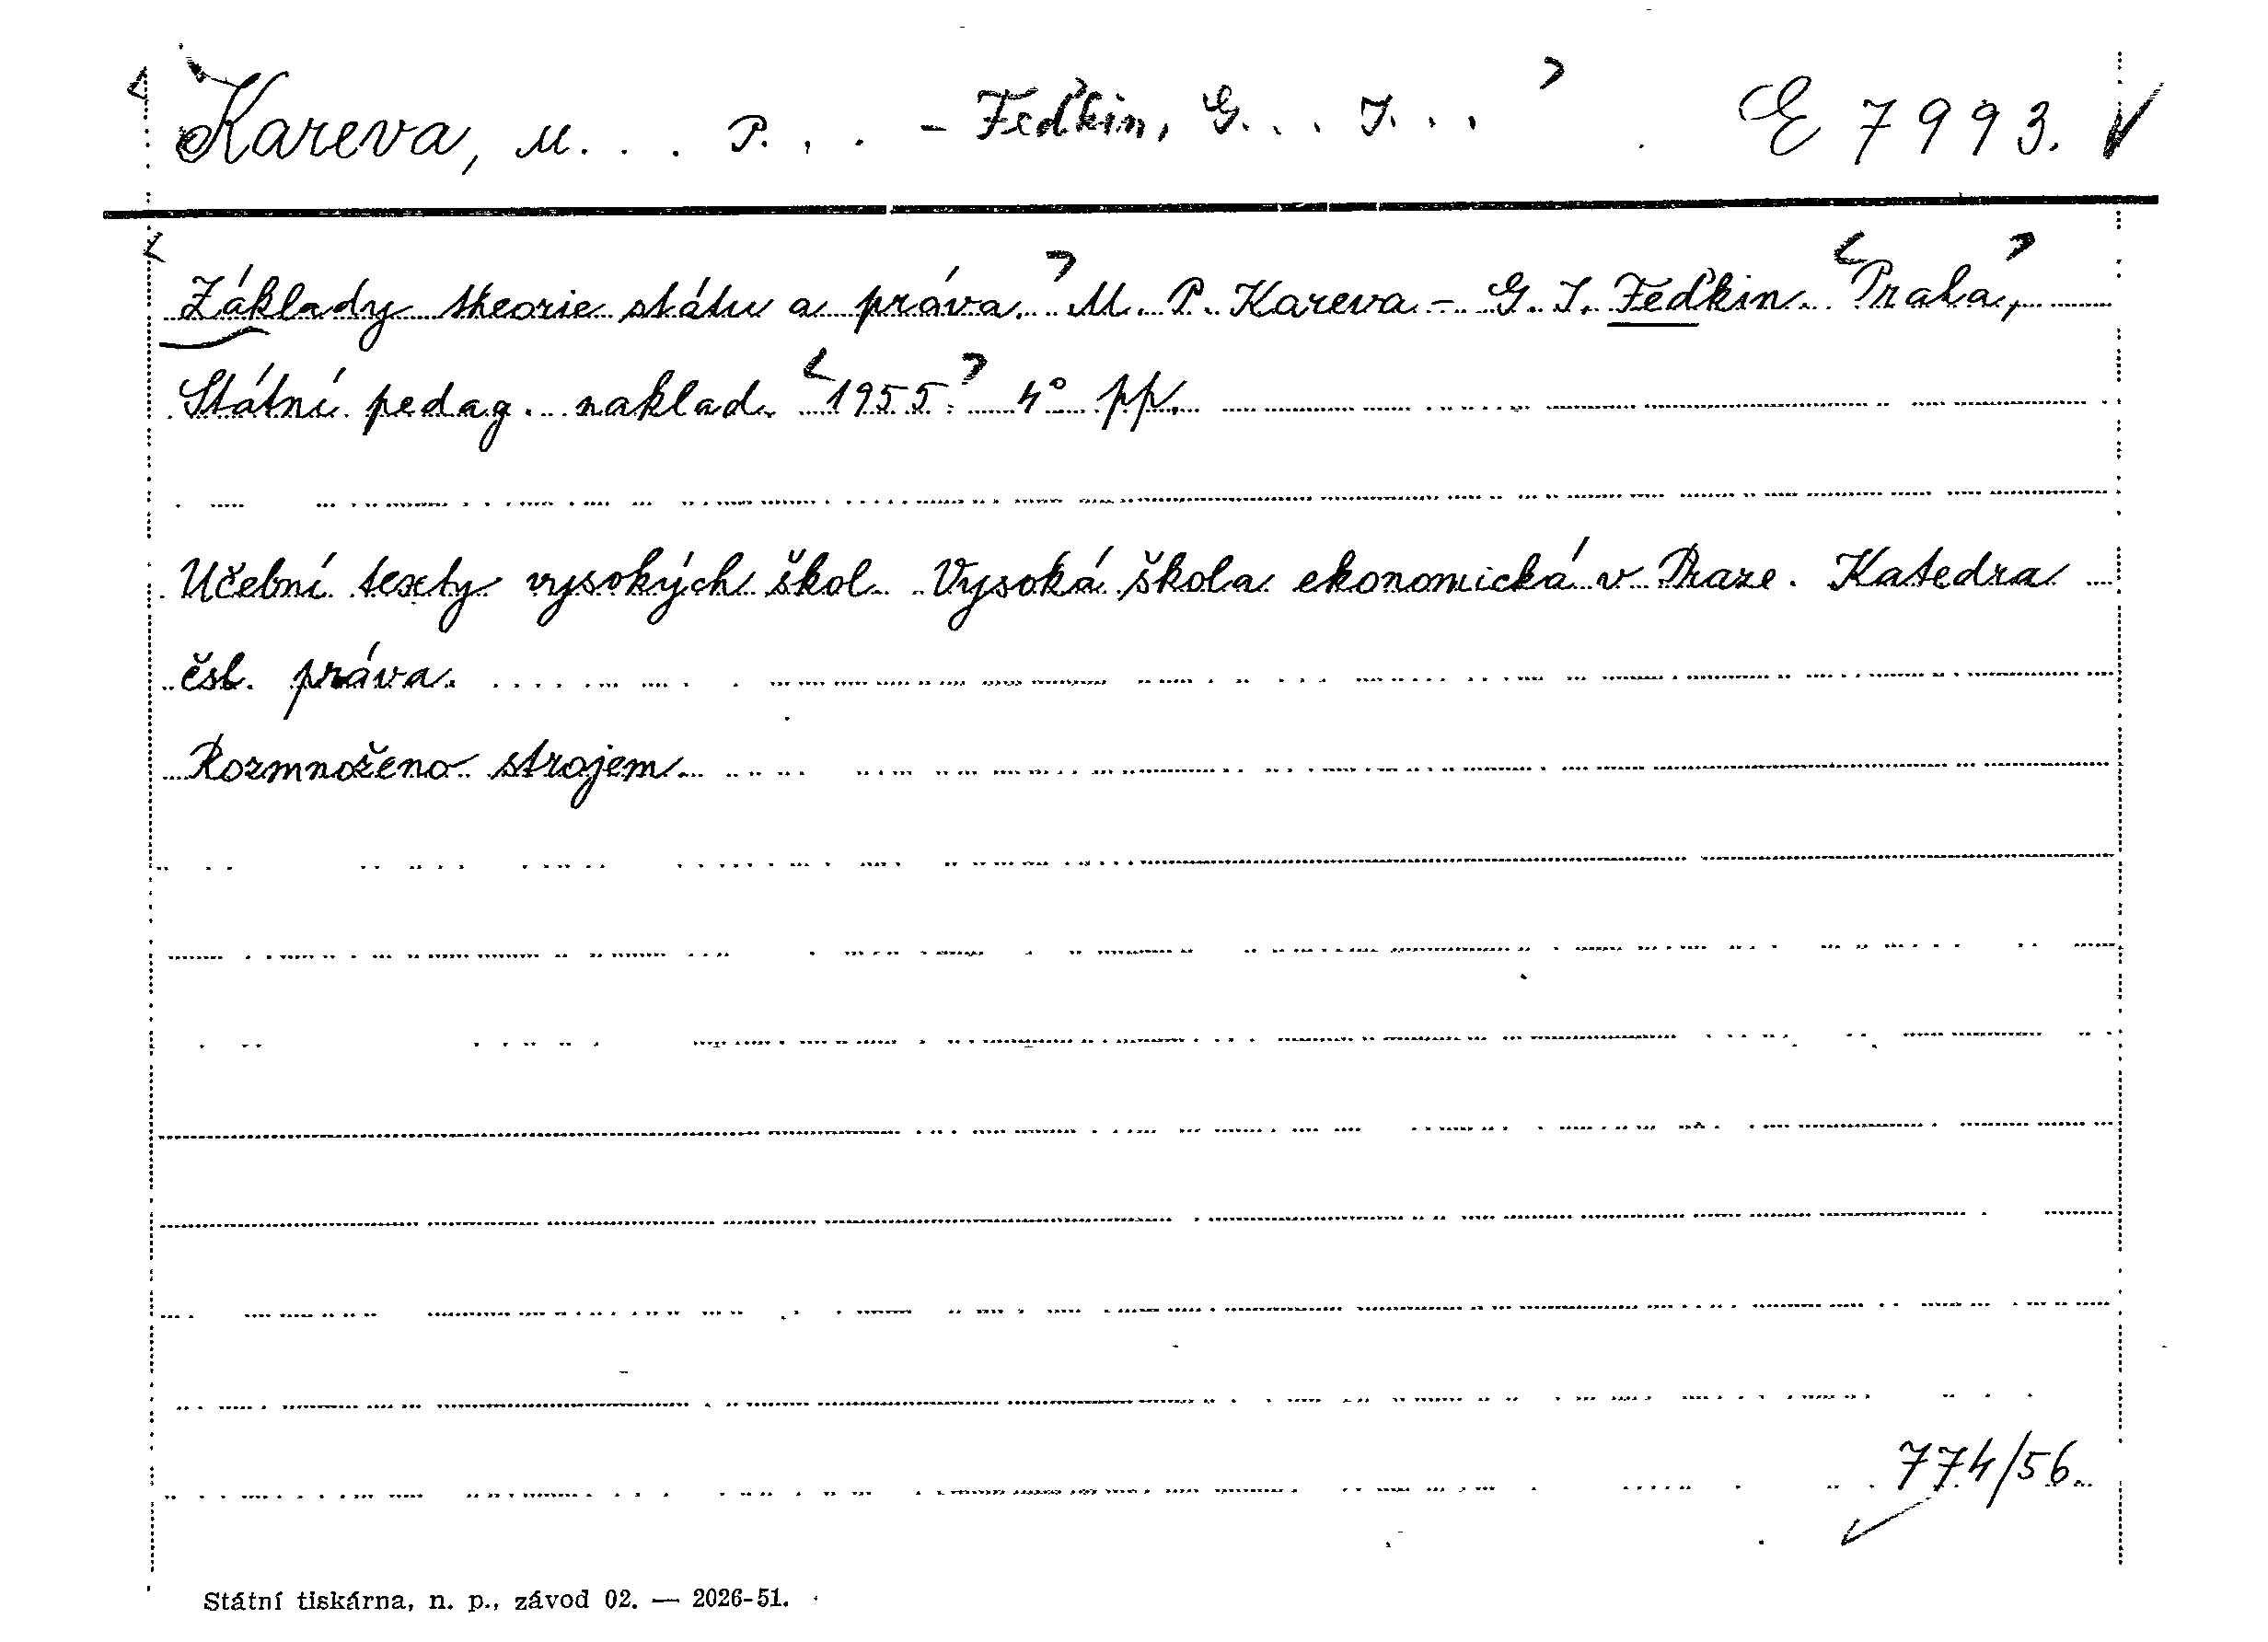 <Kareva, M. . . P. . . - Feďkin, G. . . I. . . > E 7993.
<Základy theorie státu a práva.> M. P. Kareva - G. I. Feďkin. <Praha,>
Státní pedag. naklad. <1955.> 4° pp.
Učební texty vysokých škol. Vysoká škola ekonomická v Praze. Katedra
čsl. práva.
Rozmnoženo strojem.
774/56.
Státní tiskárna, n. p., závod 02. — 2026-51.